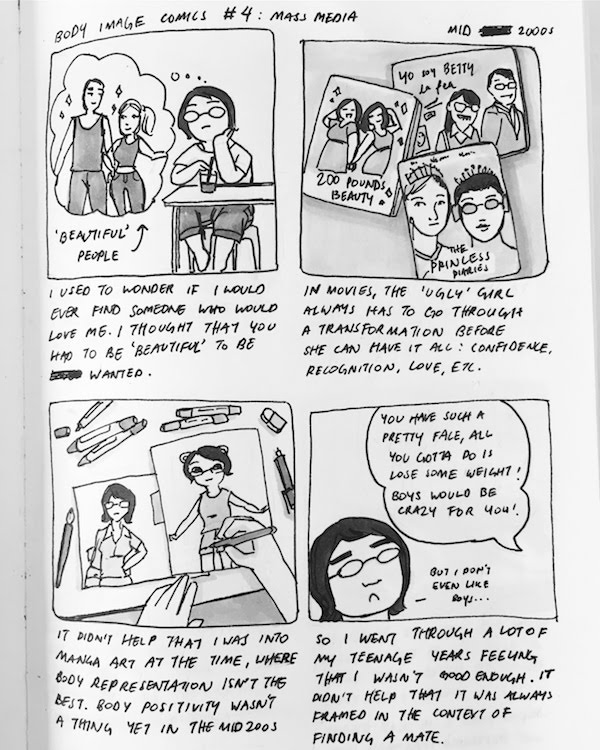 BODY IMAGE COMICS #4: MASS MEDIA
MID 2000S
'BEAUTIFUL'
PEOPLE
I USED TO WONDER IF I WOULD
EVER FIND SOMEONE WHO WOULD
LOVE ME. I THOUGHT THAT YOU
HAD TO BE 'BEAUTIFUL' TO BE
WANTED.
YO SOY BETTY
la fea
200 POUNDS
BEAUTY
THE
PRINCESS
DIARIES
IN MOVIES, THE 'UGLY' GIRL
ALWAYS HAS TO GO THROUGH
A TRANSFORMATION BEFORE
SHE CAN HAVE IT ALL: CONFIDENCE,
RECOGNITION, LOVE, ETC.
IT DIDN'T HELP THAT I WAS INTO
MANGA ART AT THE TIME, WHERE
BODY REPRESENTATION ISN'T THE
BEST. BODY POSITIVITY WASN'T
A THING YET IN THE MID 200S
YOU HAVE SUCH A
PRETTY FACE, ALL
YOU GOTTA DO IS
LOSE SOME WEIGHT!
BOYS WOULD BE
CRAZY FOR YOU!
BUT I DON'T
EVEN LIKE
BOYS...
SO I WENT THROUGH A LOT OF
MY TEENAGE YEARS FEELING
THAT I WASN'T GOOD ENOUGH. IT
DIDN'T HELP THAT IT WAS ALWAYS
FRAMED IN THE CONTEXT OF
FINDING A MATE.